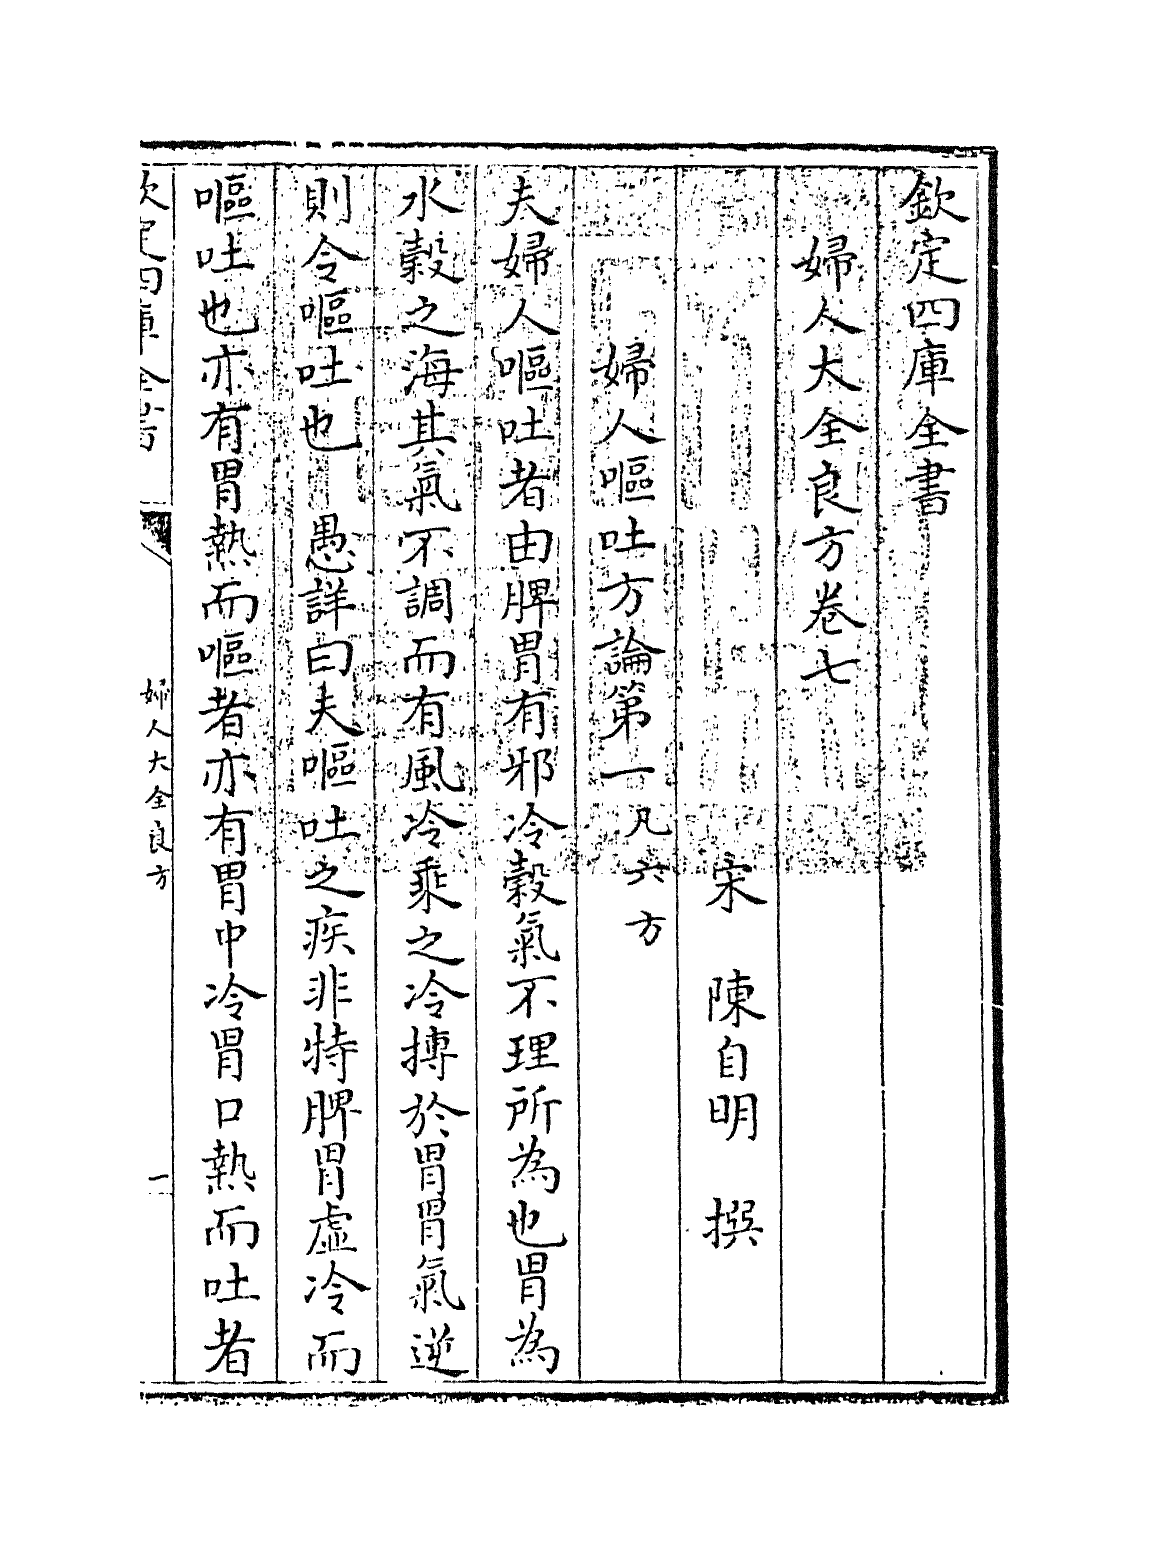 欽定四庫全書
婦人大全良方卷七
宋 陳自明 撰
婦人嘔吐方論第一凡六方
夫婦人嘔吐者由脾胃有邪冷榖氣不理所為也胃為
水榖之海其氣不調而有風冷乘之冷搏於胃胃氣逆
則令嘔吐也 愚詳曰夫嘔吐之疾非特脾胃虛冷而
嘔吐也亦有胃熱而嘔者亦有胃中冷胃口熱而吐者
欽定四庫全書
婦人大全良方
一